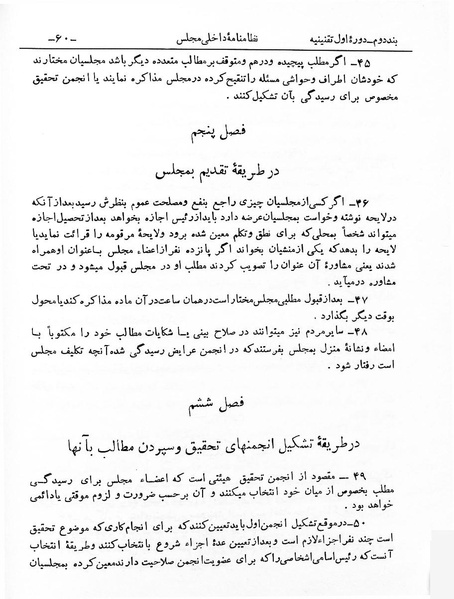 بند دوم ـ دورهٔ اول تقنینیه نظامنامهٔ داخلی مجلس ـ۶۰ـ
۴۵ـ اگر مطلب پیچیده و درهم و متوقف بر مطالب متعدده دیگر باشد مجلسیان مختارند
که خودشان اطراف و حواشی مسئله را تنقیح کرده درمجلس مذاکره نمایند یا انجمن تحقیق
مخصوص برای رسیدگی بآن تشکیل کنند .
فصل پنجم
در طریقهٔ تقدیم بمجلس
۴۶ـ اگر کسی از مجلسیان چیزی راجع بنفع و مصلحت عموم بنظرش رسید بعد از آنکه
در لایحه نوشته و خواست بمجلسیان عرضه دارد باید از رئیس اجازه بخواهد بعد از تحصیل اجازه
میتواند شخصاً بمحلی که برای نطق و تکلم معین شده برود ولایحهٔ مرقومه را قرائت نماید یا
لایحه را بدهد که یکی از منشیان بخواند اگر پانزده نفر از اعضاء مجلس با عنوان او همراه
شدند یعنی مشاورهٔ آن عنوان را تصویب کردند مطلب او در مجلس قبول میشود و در تحت
مشاوره درمیآید .
۴۷ـ بعد از قبول مطلبی مجلس مختار است در همان ساعت در آن ماده مذاکره کند یا محول
بوقت دیگر بگذارد .
۴۸ـ سایر مردم نیز میتوانند در صلاح بینی یا شکایات مطالب خود را مکتوباً با
امضاء و نشانهٔ منزل بمجلس بفرستند که در انجمن عرایض رسیدگی شده آنچه تکلیف مجلس
است رفتار شود .
فصل ششم
در طریقهٔ تشکیل انجمنهای تحقیق و سپردن مطالب بآنها
۴۹ ـ مقصود از انجمن تحقیق هیئتی است که اعضاء مجلس برای رسیدگی
مطلب بخصوص از میان خود انتخاب میکنند و آن برحسب ضرورت و لزوم موقتی یا دائمی
خواهد بود .
۵۰ـ در موقع تشکیل انجمن اول باید تعیین کنند که برای انجام کاری که موضوع تحقیق
است چند نفر اجزاء لازم است و بعد از تعیین عدهٔ اجزاء شروع بانتخاب کنند و طریقهٔ انتخاب
آنست که رئیس اسامی اشخاصی را که برای عضویت انجمن صلاحیت دارند معین کرده بمجلسیان